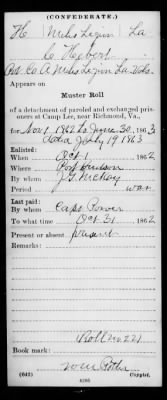 (CONFEDERATE.)
H Miles Legion La
C Hebert
Pvt Co A Miles Legion La. Vols.
Appears on
Muster Roll
of a detachment of paroled and exchanged prisoners
at Camp Lee, near Richmond, Va.,
for Nov 1 1862 to June 30, 1863
dated July 19 1863
Enlisted:
When Oct 1 1862
Where Port Hudson
By whom J. G. McKay
Period war
Last paid:
By whom Capt. Power
To what time Oct 31 1862
Present or absent present
Remarks:
Roll no. 221
Book mark:
(642) Copyist.